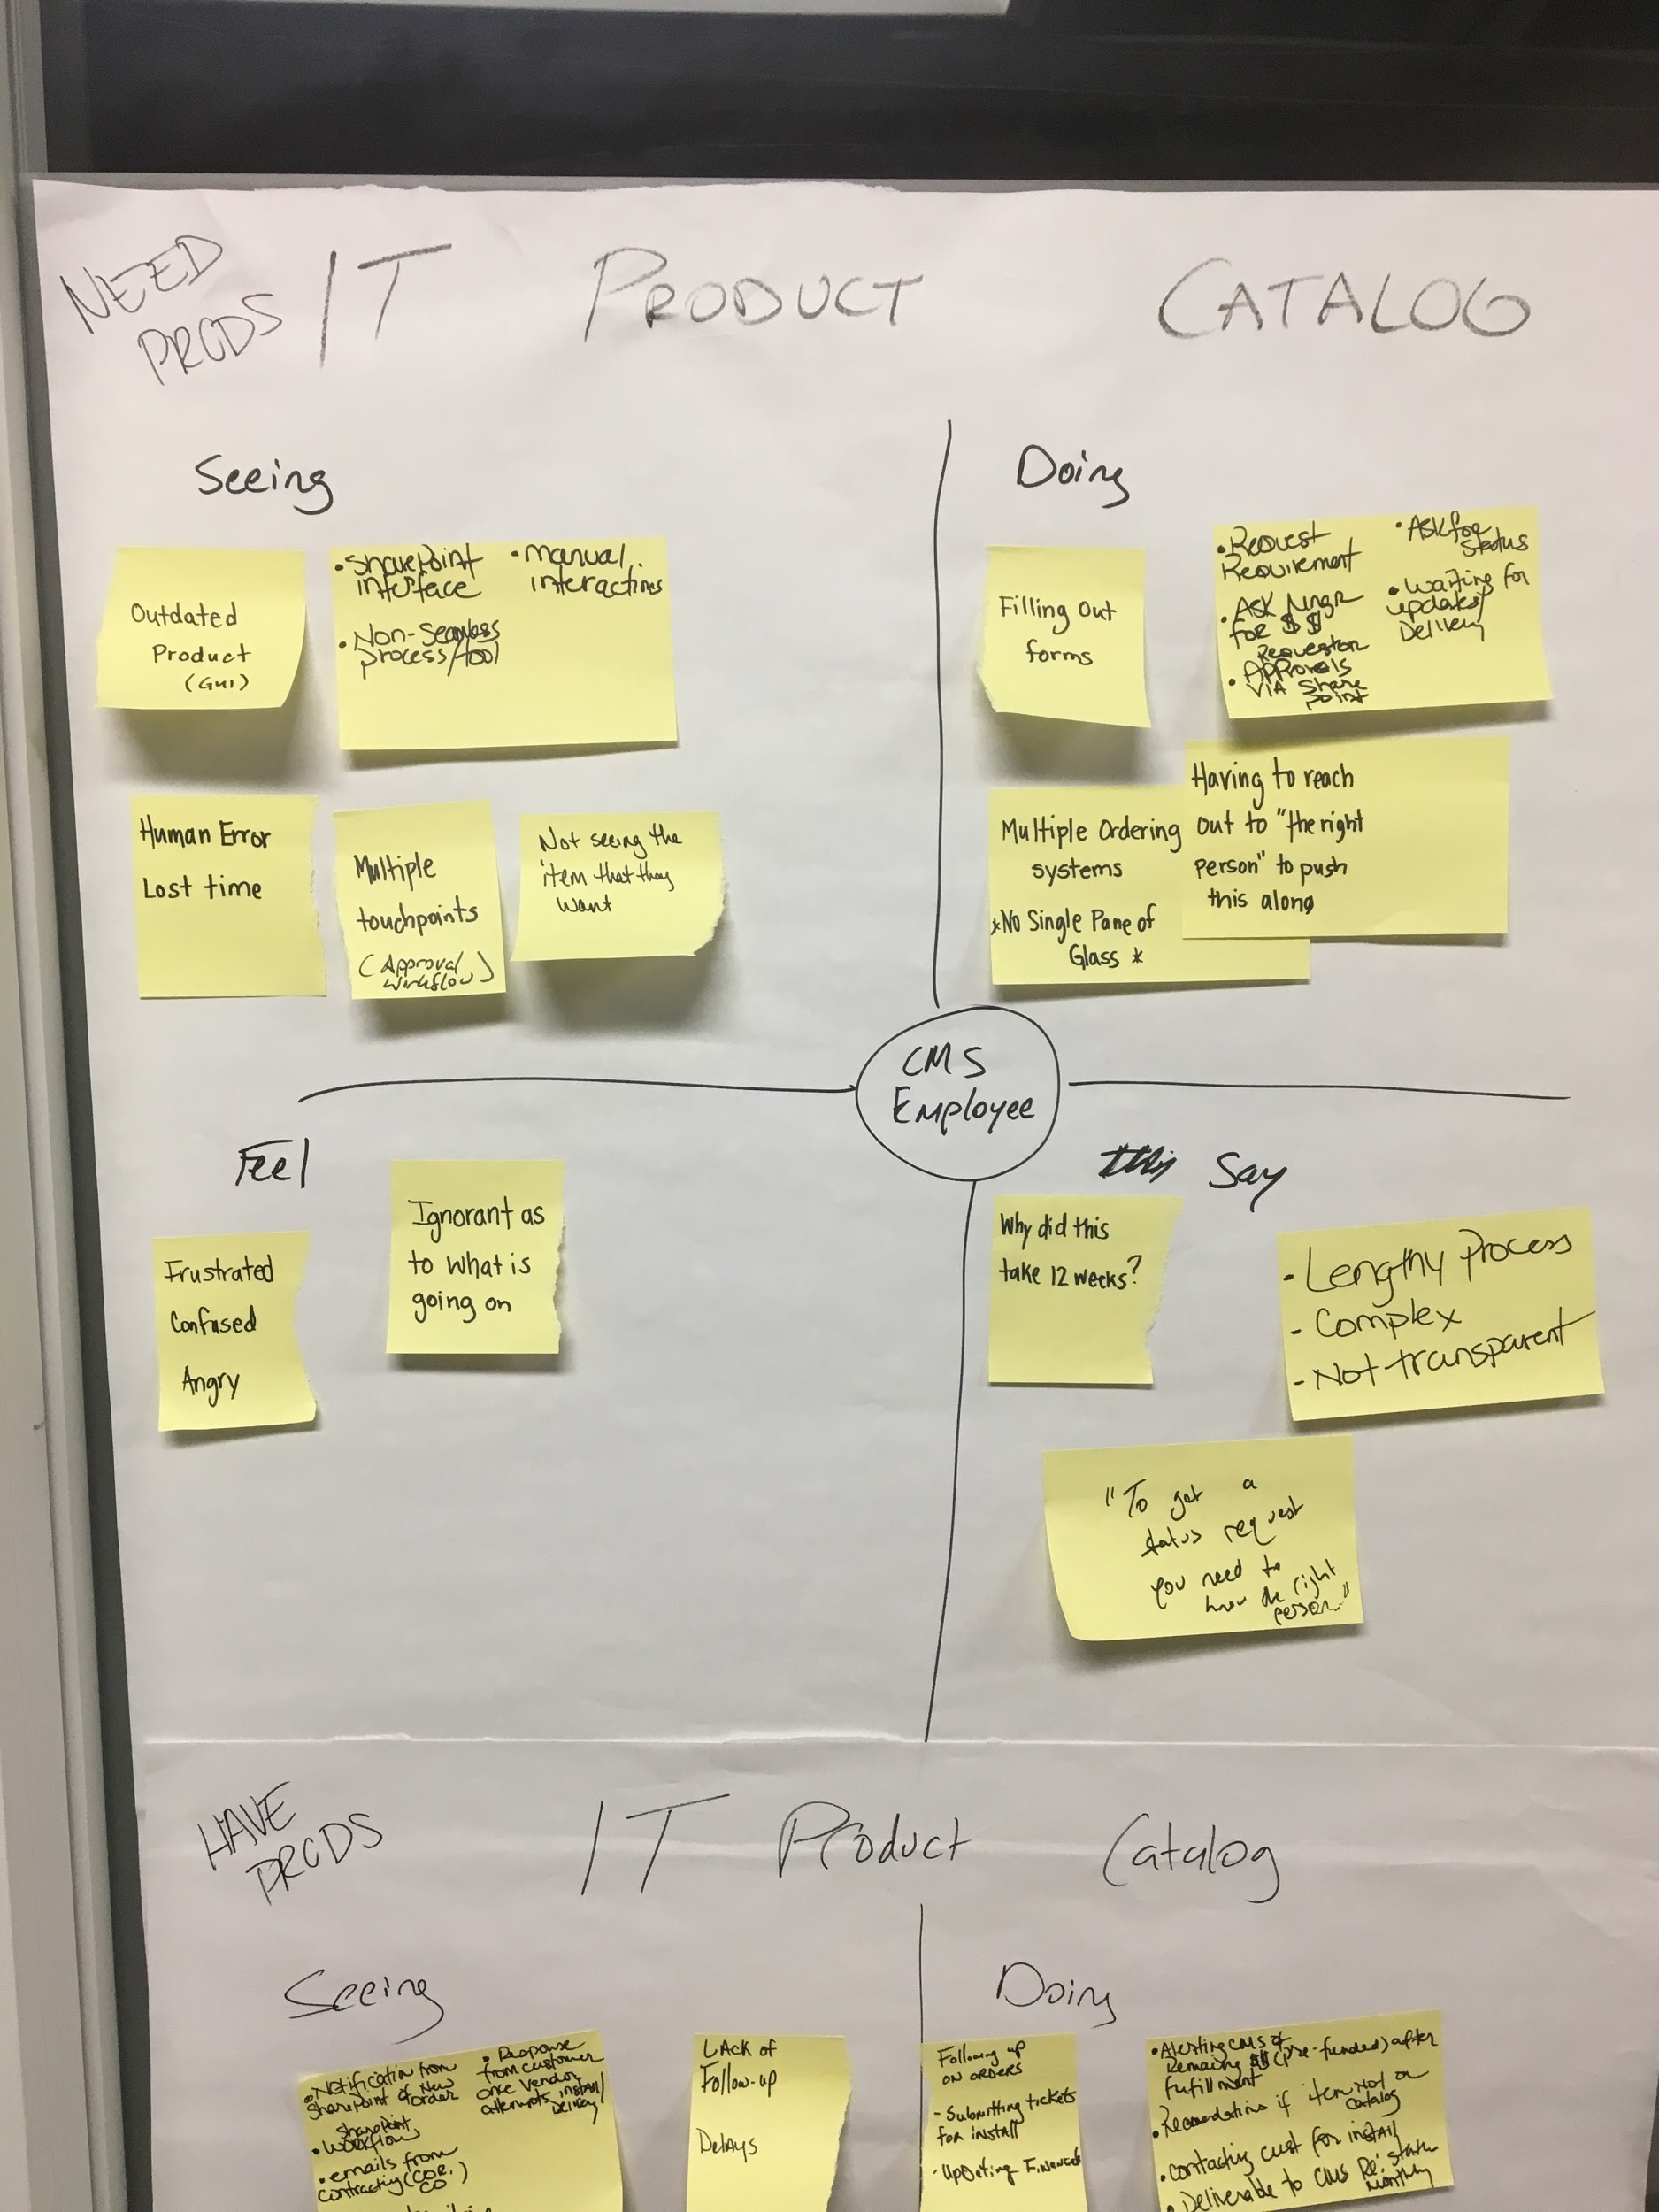 NEED
PRODS
IT PRODUCT CATALOG
Seeing
Outdated
Product
(GUI)
• SharePoint
interface
• Non-Seamless
process/tool
• Manual
interactions
Human Error
Lost time
Multiple
touchpoints
(Approval
Workflow)
Not seeing the
item that they
want
Doing
Filling Out
forms
• Request
Requirement
• Ask Mngr
for $$
Requestor
• Approvals
VIA Share
point
• Ask for
Status
• Waiting for
updates/
Delivery
Multiple Ordering
systems
*No Single Pane of
Glass *
Having to reach
out to "the right
person" to push
this along
CMS
Employee
Feel
Frustrated
Confused
Angry
Ignorant as
to what is
going on
Say
Why did this
take 12 weeks?
- Lengthy Process
- Complex
- Not transparent
"To get a
status request
you need to
know the right
person."
HAVE
PRODS
IT Product Catalog
Seeing
• Notification from
SharePoint of New
order
SharePoint
• Workflow
• emails from
contracting (COR,
CO)
• Response
from customer
once Vendor
attempts install/
Delivery
Lack of
Follow-up
Delays
Doing
Following up
on orders
- Submitting tickets
for install
- Updating Finances
• Alerting CMS of
Remaining $$ (pre-funded) after
fufillment
if item not on
catalog
• contacting cust for install
• Deliverable to CMS
Monthly